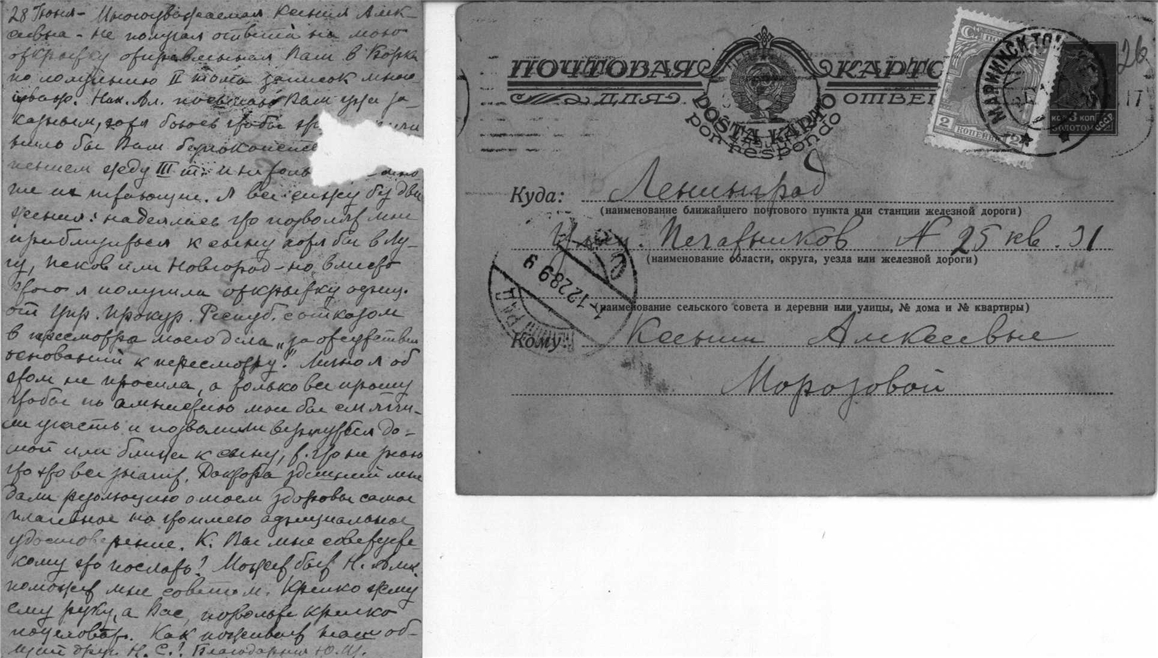 28 Июня - Многоуважаемая Ксения Алек-
сеевна - не получая ответа на мою
открытку отправленную Вам в Борки
по получению II тома записок много
уваж. Ник. Ал. посылаю Вам эти за-
казным, хотя боюсь чтобы
было бы Вам беспокойство
жду III т. и не только
же их читающи. Я все сижу без дви
жения: надеялась что позволят мне
приблизиться к сыну хотя бы в Лу-
гу, Псков или Новгород - но, вместо
этого я получила открытку
от Прокур. Респуб. с отказом
в пересмотре моего дела "за отсутствием
оснований к пересмотру". Лично я об
этом не просила, а только все прошу
чтобы по амнистию мне бы смягчи-
ли участь и позволили вернуться до-
мой или ближе к сыну, т. что не знаю
что это все значит. Доктора здешний мне
дали резолюцию о моем здоровье самое
плачевное на что имею официальное
удостоверение. К. Вы мне советуете
кому это послать? Может быть Н. Ал.
поможет мне советом. Крепко жму
ему руку, а Вас, позвольте крепко
поцеловать. Как поживает наш об-
щий друг Н. С.? Благодарная Ю.
ПОЧТОВАЯ КАРТО
ДЛЯ ОТВЕ
POŜTA KARTO
por respondo
МАРИИНСК ТОМ
2 КОПЕЙКИ 2
КОП 3 КОП
ЗОЛОТОМ
26
Куда: Ленинград
(наименование ближайшего почтового пункта или станции железной дороги)
Печатников N 25 кв. 31
(наименование области, округа, уезда или железной дороги)
(наименование сельского совета и деревни или улицы, № дома и № квартиры)
Кому: Ксении Алексеевне
Морозовой